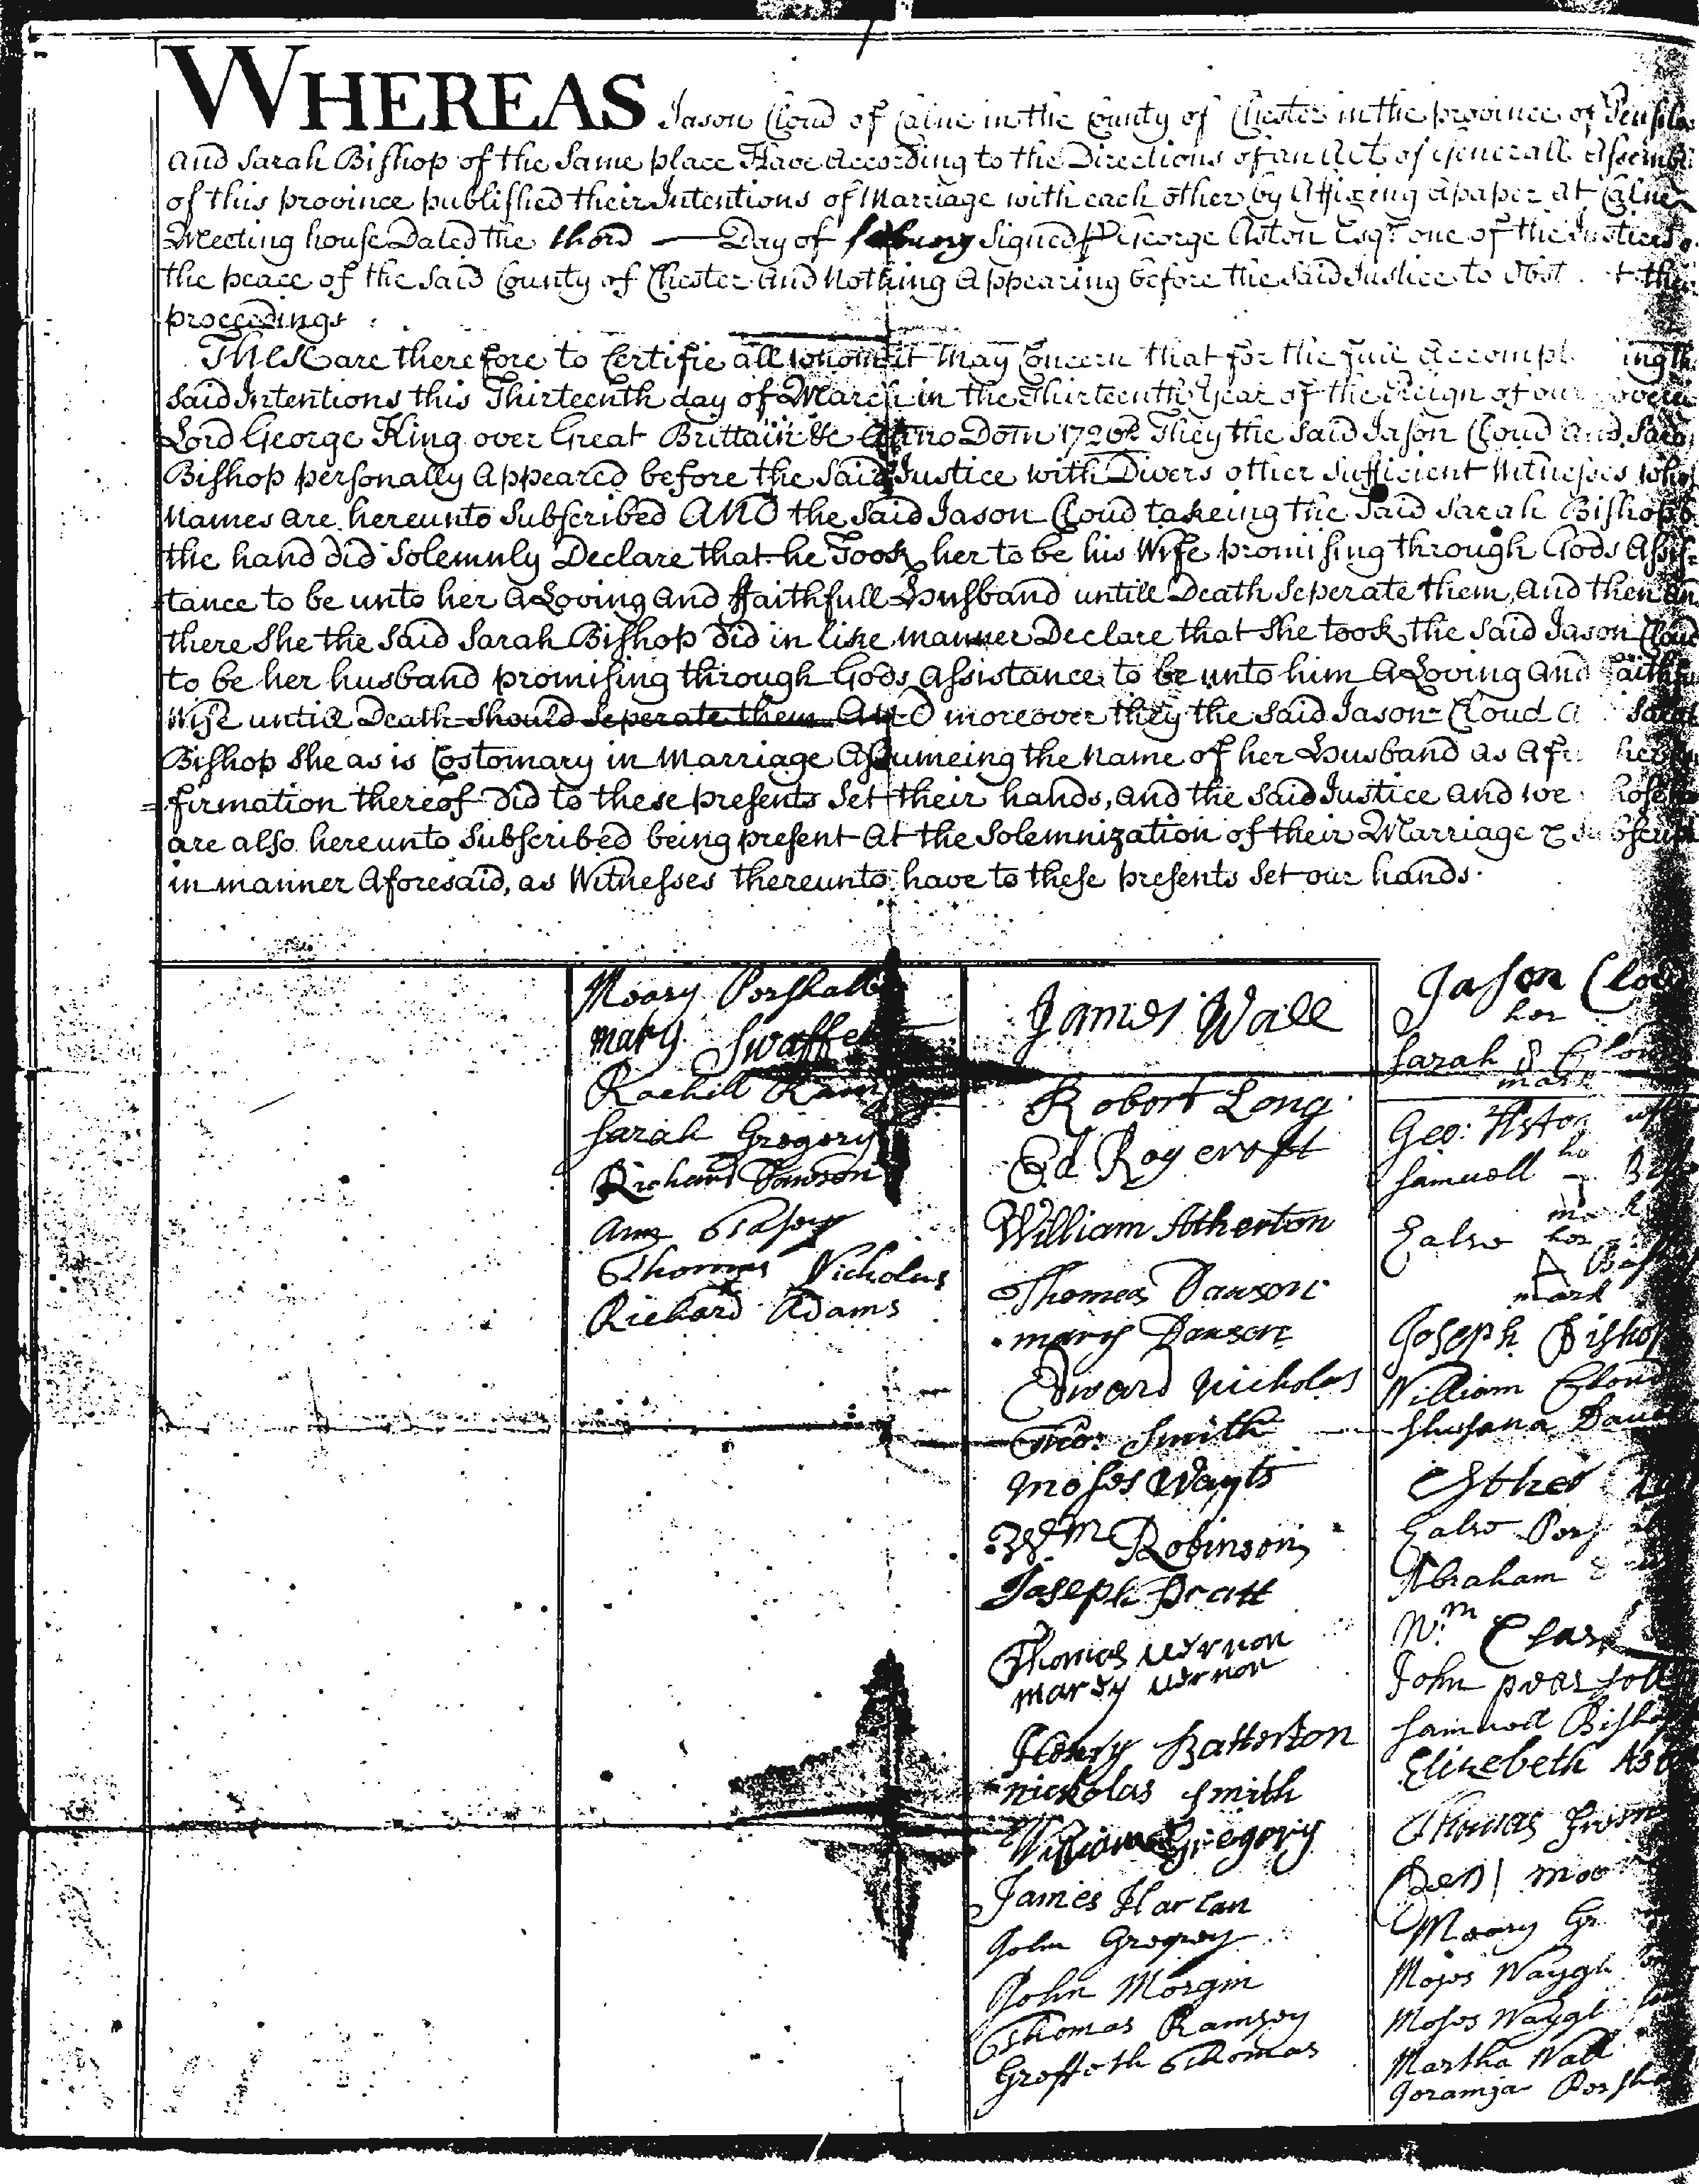 WHEREAS Jason Cloud of Calne in the County of Chester in the province of
and Sarah Bishop of the Same place Have according to the Directions of an Act of Generall
of this province published their Intentions of Marriage with each other by Affixing a paper at Calne
Meeting house Dated the third Day of Signed George Aston Esqr. one of the Justices
the peace of the Said County of Chester And Nothing Appearing before the Said Justice to
proceedings
These are therefore to Certifie all whom it May Concern that for the full
said Intentions this Thirteenth day of March in the Thirteenth Year of the Reign of our
Lord George King over Great Brittain &c Anno Dom They the Said Jason Cloud and
Bishop personally Appeared before the Said Justice with Divers other Sufficient Witnesses
Names are hereunto Subscribed AND the Said Jason Cloud takeing the Said Sarah Bishop
the hand did Solemnly Declare that he Took her to be his Wife promising through Gods Assis-
tance to be unto her a Loving and ffaithfull Husband untill Death Seperate them, And then
there She the Said Sarah Bishop did in like manner Declare that She took the Said Jason Cloud
to be her husband promising through Gods Assistance to be unto him a Loving and
Wife untill Death should Seperate them AND moreover they the Said Jason Cloud
Bishop She as is Costomary in Marriage Assumeing the Name of her Husband as a
=firmation thereof Did to these presents Set their hands, and the said Justice and we
are also hereunto Subscribed being present at the Solemnization of their Marriage &
in manner Aforesaid, as Witnesses thereunto have to these presents Set our hands.
Moary
mary
Rachill
Sarah Gregory
Richard Dawson
Ann
Thomas Nicholus
Richard Adams
James Wall
Robort Long
Ed Roycroft
William Atherton
Thomas Dawson
mary Dawson
Edward Nicholas
Tho: Smith
Moses Wayts
Wm Robinson
Joseph Pratt
Thomas vernon
mardy vernon
Henry Batterton
nickolas Smith
William Gregory
James Harlan
John Gregory
John Morgin
Thomas Ramsey
Groffeth Thomas
Jason
her
Sarah
mark
Geo: Aston
Samuell
Ealse her
mark
Joseph Bishop
William Cloud
Shusana
Esther
Ealse
Abraham
Wm
John
Samuell
Elizebeth
Thomas
Benj
Moary
Moses
Moses
Martha Wall
Joramja